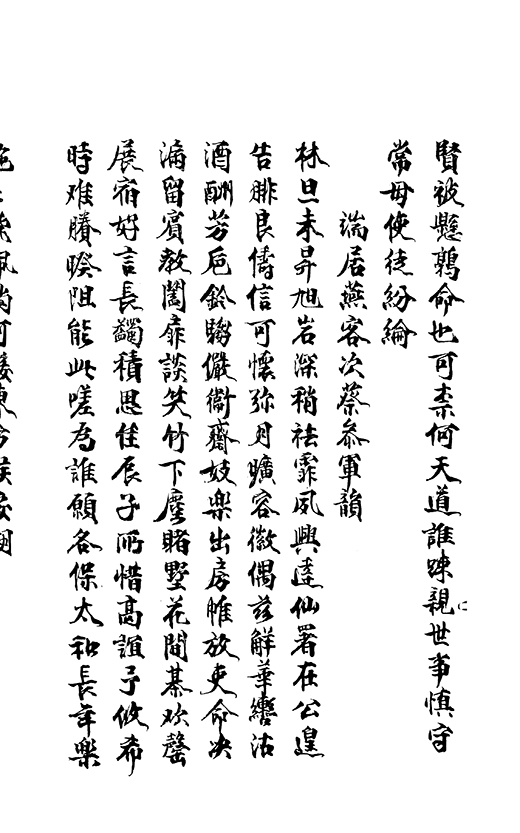 賢被懸鶉命也可柰何天道誰踈親世事慎守
常毋使徒紛綸
端居燕客次蔡叅軍韻
林旦未昇旭岩深稍祛霏夙興遠仙署在公遑
告腓良儔信可懷弥月曠容徽偶玆解華轡沽
酒酬芳巵鈴騶儼衛齋妓樂出房帷放吏命决
滿留賓敎闔扉談笑竹下麈賭墅花間棊欢罄
展宿好言長蠲積思佳辰子所惜高誼予攸希
時难賸暌阻能此嗟為誰願各保太和長年樂